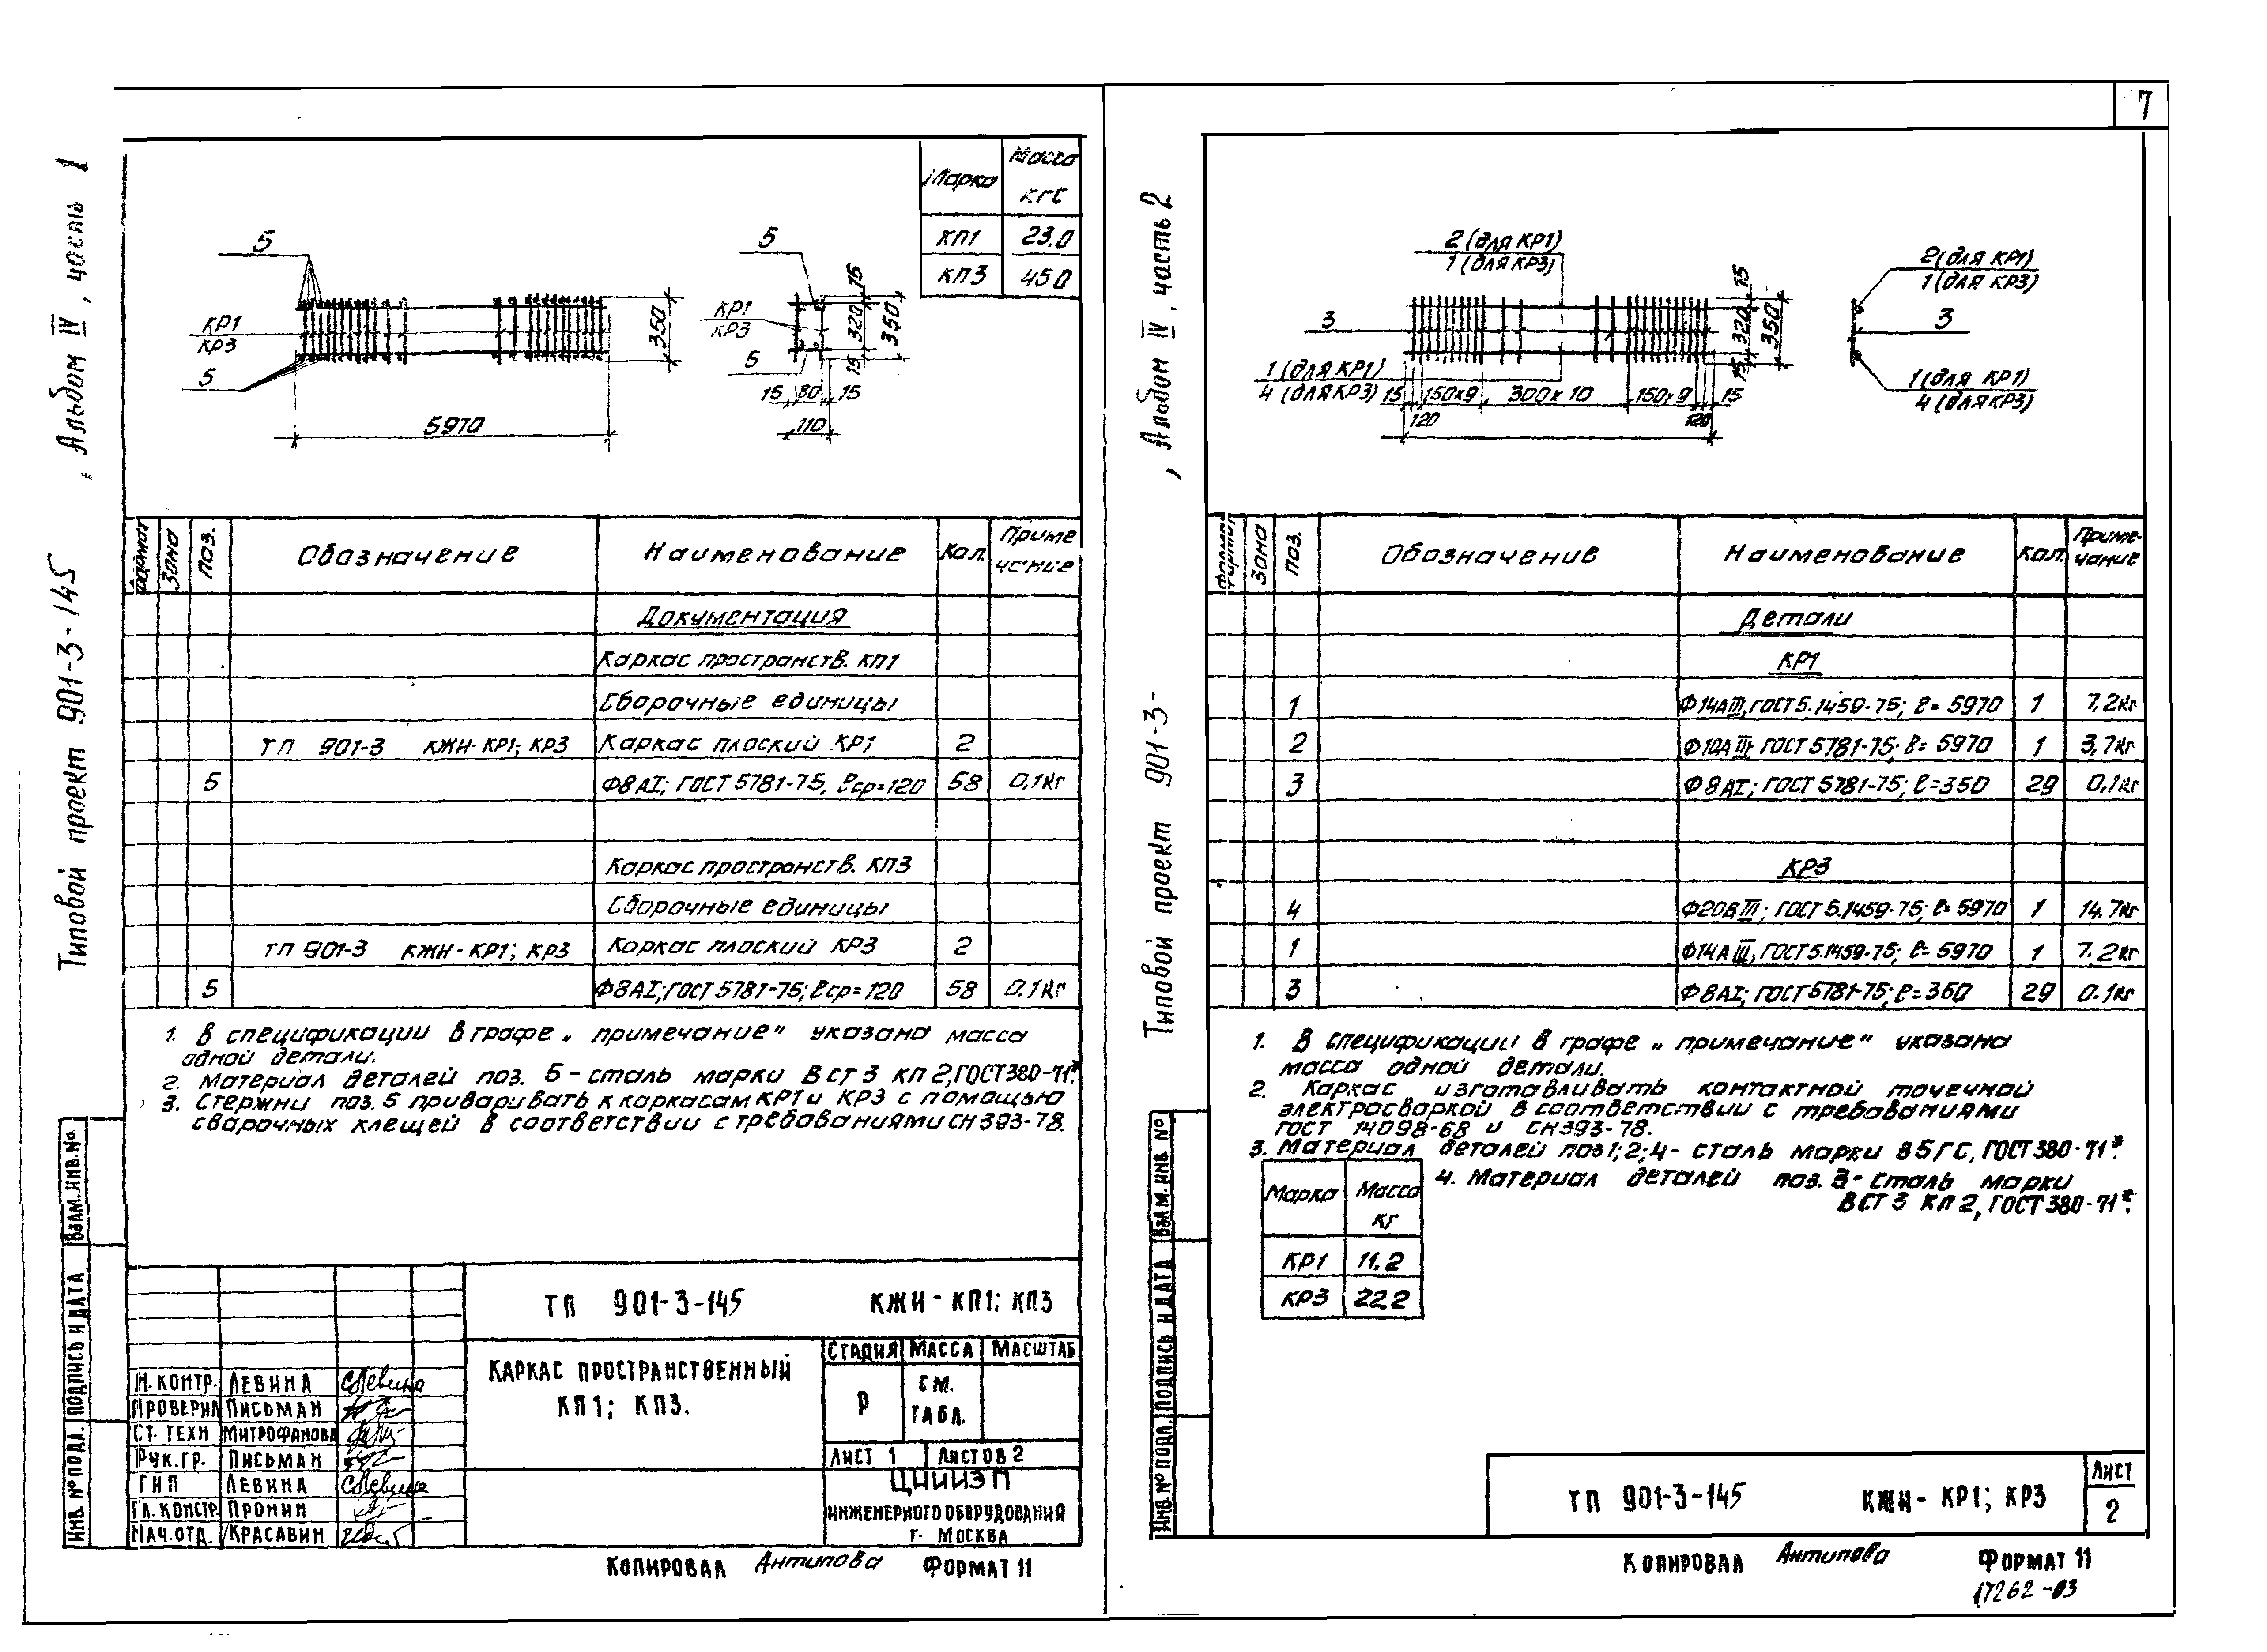 7
Типовой проект 901-3-145 , Альбом IV, часть 1
Марка Масса кгс
КП1 23.0
КП3 45.0
5
5
КР1
КР3
5
350
5970
5
КР1
КР3
5
15
320
15
350
15 80 15
110
Формат Зона Поз. Обозначение Наименование Кол. Приме чание
Документация
Каркас пространств. КП1
Сборочные единицы
ТП 901-3 КЖН-КР1; КР3 Каркас плоский КР1 2
5 Ф8АI; ГОСТ 5781-75, ℓср=120 58 0,1кг
Каркас пространств. КП3
Сборочные единицы
ТП 901-3 КЖН-КР1; КР3 Каркас плоский КР3 2
5 Ф8АI; ГОСТ 5781-75; ℓср=120 58 0.1кг
1. В спецификации в графе „примечание" указана масса
одной детали.
2. Материал деталей поз. 5 - сталь марки ВСт 3 кп 2, ГОСТ 380-71*.
3. Стержни поз. 5 приваривать к каркасам КР1 и КР3 с помощью
сварочных клещей в соответствии с требованиями СН 393-78.
ИНВ. № ПОДЛ. ПОДПИСЬ И ДАТА ВЗАМ. ИНВ. №
ТП 901-3-145 КЖН - КП1; КП3
КАРКАС ПРОСТРАНСТВЕННЫЙ
КП1; КП3.
СТАДИЯ МАССА МАСШТАБ
Р СМ. ТАБЛ.
ЛИСТ 1 ЛИСТОВ 2
ЦНИИЭП
ИНЖЕНЕРНОГО ОБОРУДОВАНИЯ
г. МОСКВА
Н. КОНТР. ЛЕВИНА
ПРОВЕРИЛ ПИСЬМАН
СТ. ТЕХН МИТРОФАНОВА
РУК. ГР. ПИСЬМАН
ГИП ЛЕВИНА
ГЛ. КОНСТР. ПРОНИН
НАЧ. ОТД. КРАСАВИН
КОПИРОВАЛ Антипова ФОРМАТ 11
Типовой проект 901-3- , Альбом IV, часть 2
2 (для КР1)
1 (для КР3)
3
1 (для КР1)
4 (для КР3)
15 150х9 300х10 150х9 15
120 120
15
320
15
350
2 (для КР1)
1 (для КР3)
3
1 (для КР1)
4 (для КР3)
Зона Поз. Обозначение Наименование Кол. Приме-чание
Детали
КР1
1 Ф14АIII, ГОСТ 5.1459-75; ℓ= 5970 1 7.2кг
2 Ф10АIII, ГОСТ 5781-75; ℓ= 5970 1 3,7кг
3 Ф8АI; ГОСТ 5781-75; ℓ=350 29 0.1кг
КР3
4 Ф20ВIII; ГОСТ 5.1459-75; ℓ= 5970 1 14.7кг
1 Ф14АIII, ГОСТ 5.1459-75; ℓ= 5970 1 7,2кг
3 Ф8АI; ГОСТ 5781-75; ℓ=350 29 0.1кг
1. В спецификации в графе „примечание" указана
масса одной детали.
2. Каркас изготавливать контактной точечной
электросваркой в соответствии с требованиями
ГОСТ 14098-68 и СН 393-78.
3. Материал деталей поз 1; 2; 4 - сталь марки 35ГС, ГОСТ 380-71*.
4. Материал деталей поз. 3 - сталь марки
ВСТ 3 КП 2, ГОСТ 380-71*.
Марка Масса кг
КР1 11.2
КР3 22.2
ИНВ. № ПОДЛ. ПОДПИСЬ И ДАТА ВЗАМ. ИНВ №
ТП 901-3-145 КЖН - КР1; КР3
ЛИСТ
2
КОПИРОВАЛ Антипова ФОРМАТ 11
17262-03